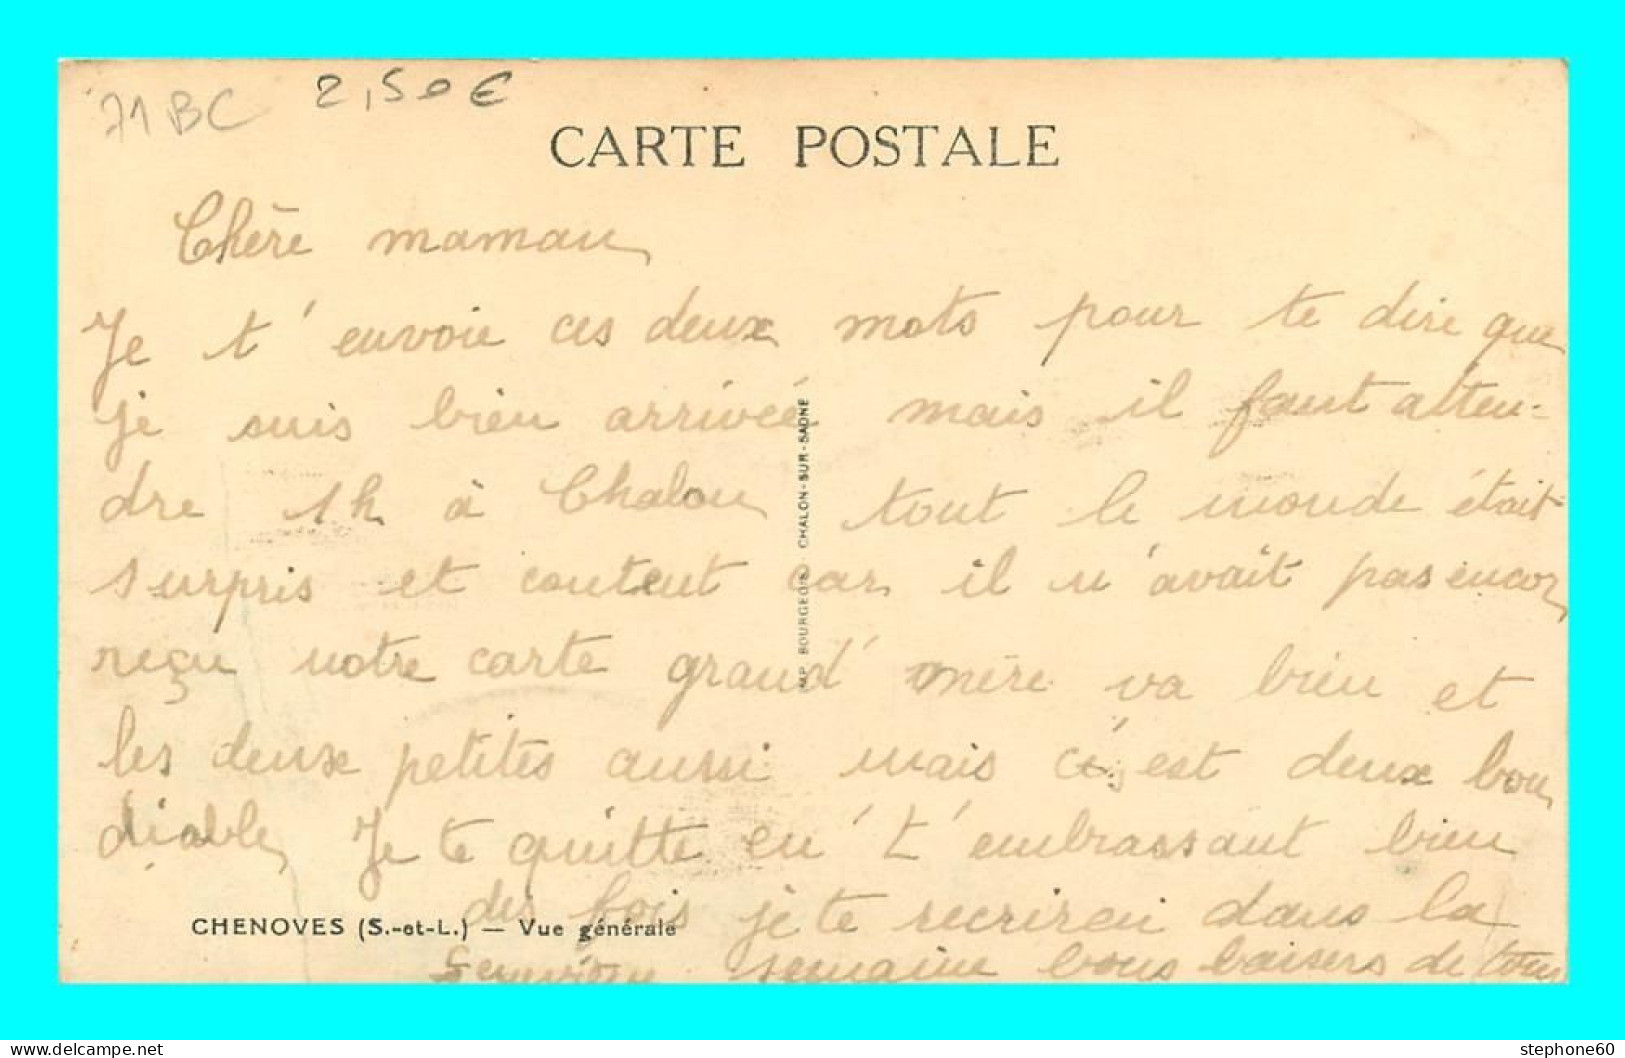 71BC 2,50€
CARTE POSTALE
Chère maman
Je t'envoie ces deux mots pour te dire que
je suis bien arrivée mais il faut atten-
dre 1h à Chalon tout le monde était
surpris et content car il n'avait pas encor
reçu notre carte grand'mère va bien et
les deux petites aussi mais c'est deux bon
diable Je te quitte en t'embrassant bien
des fois je te recrirai dans la
semaine bons baisers de tous
CHENOVES (S.-et-L.) — Vue générale
IMP. BOURGEOIS, CHALON-SUR-SAONE
www.delcampe.net
stephone60